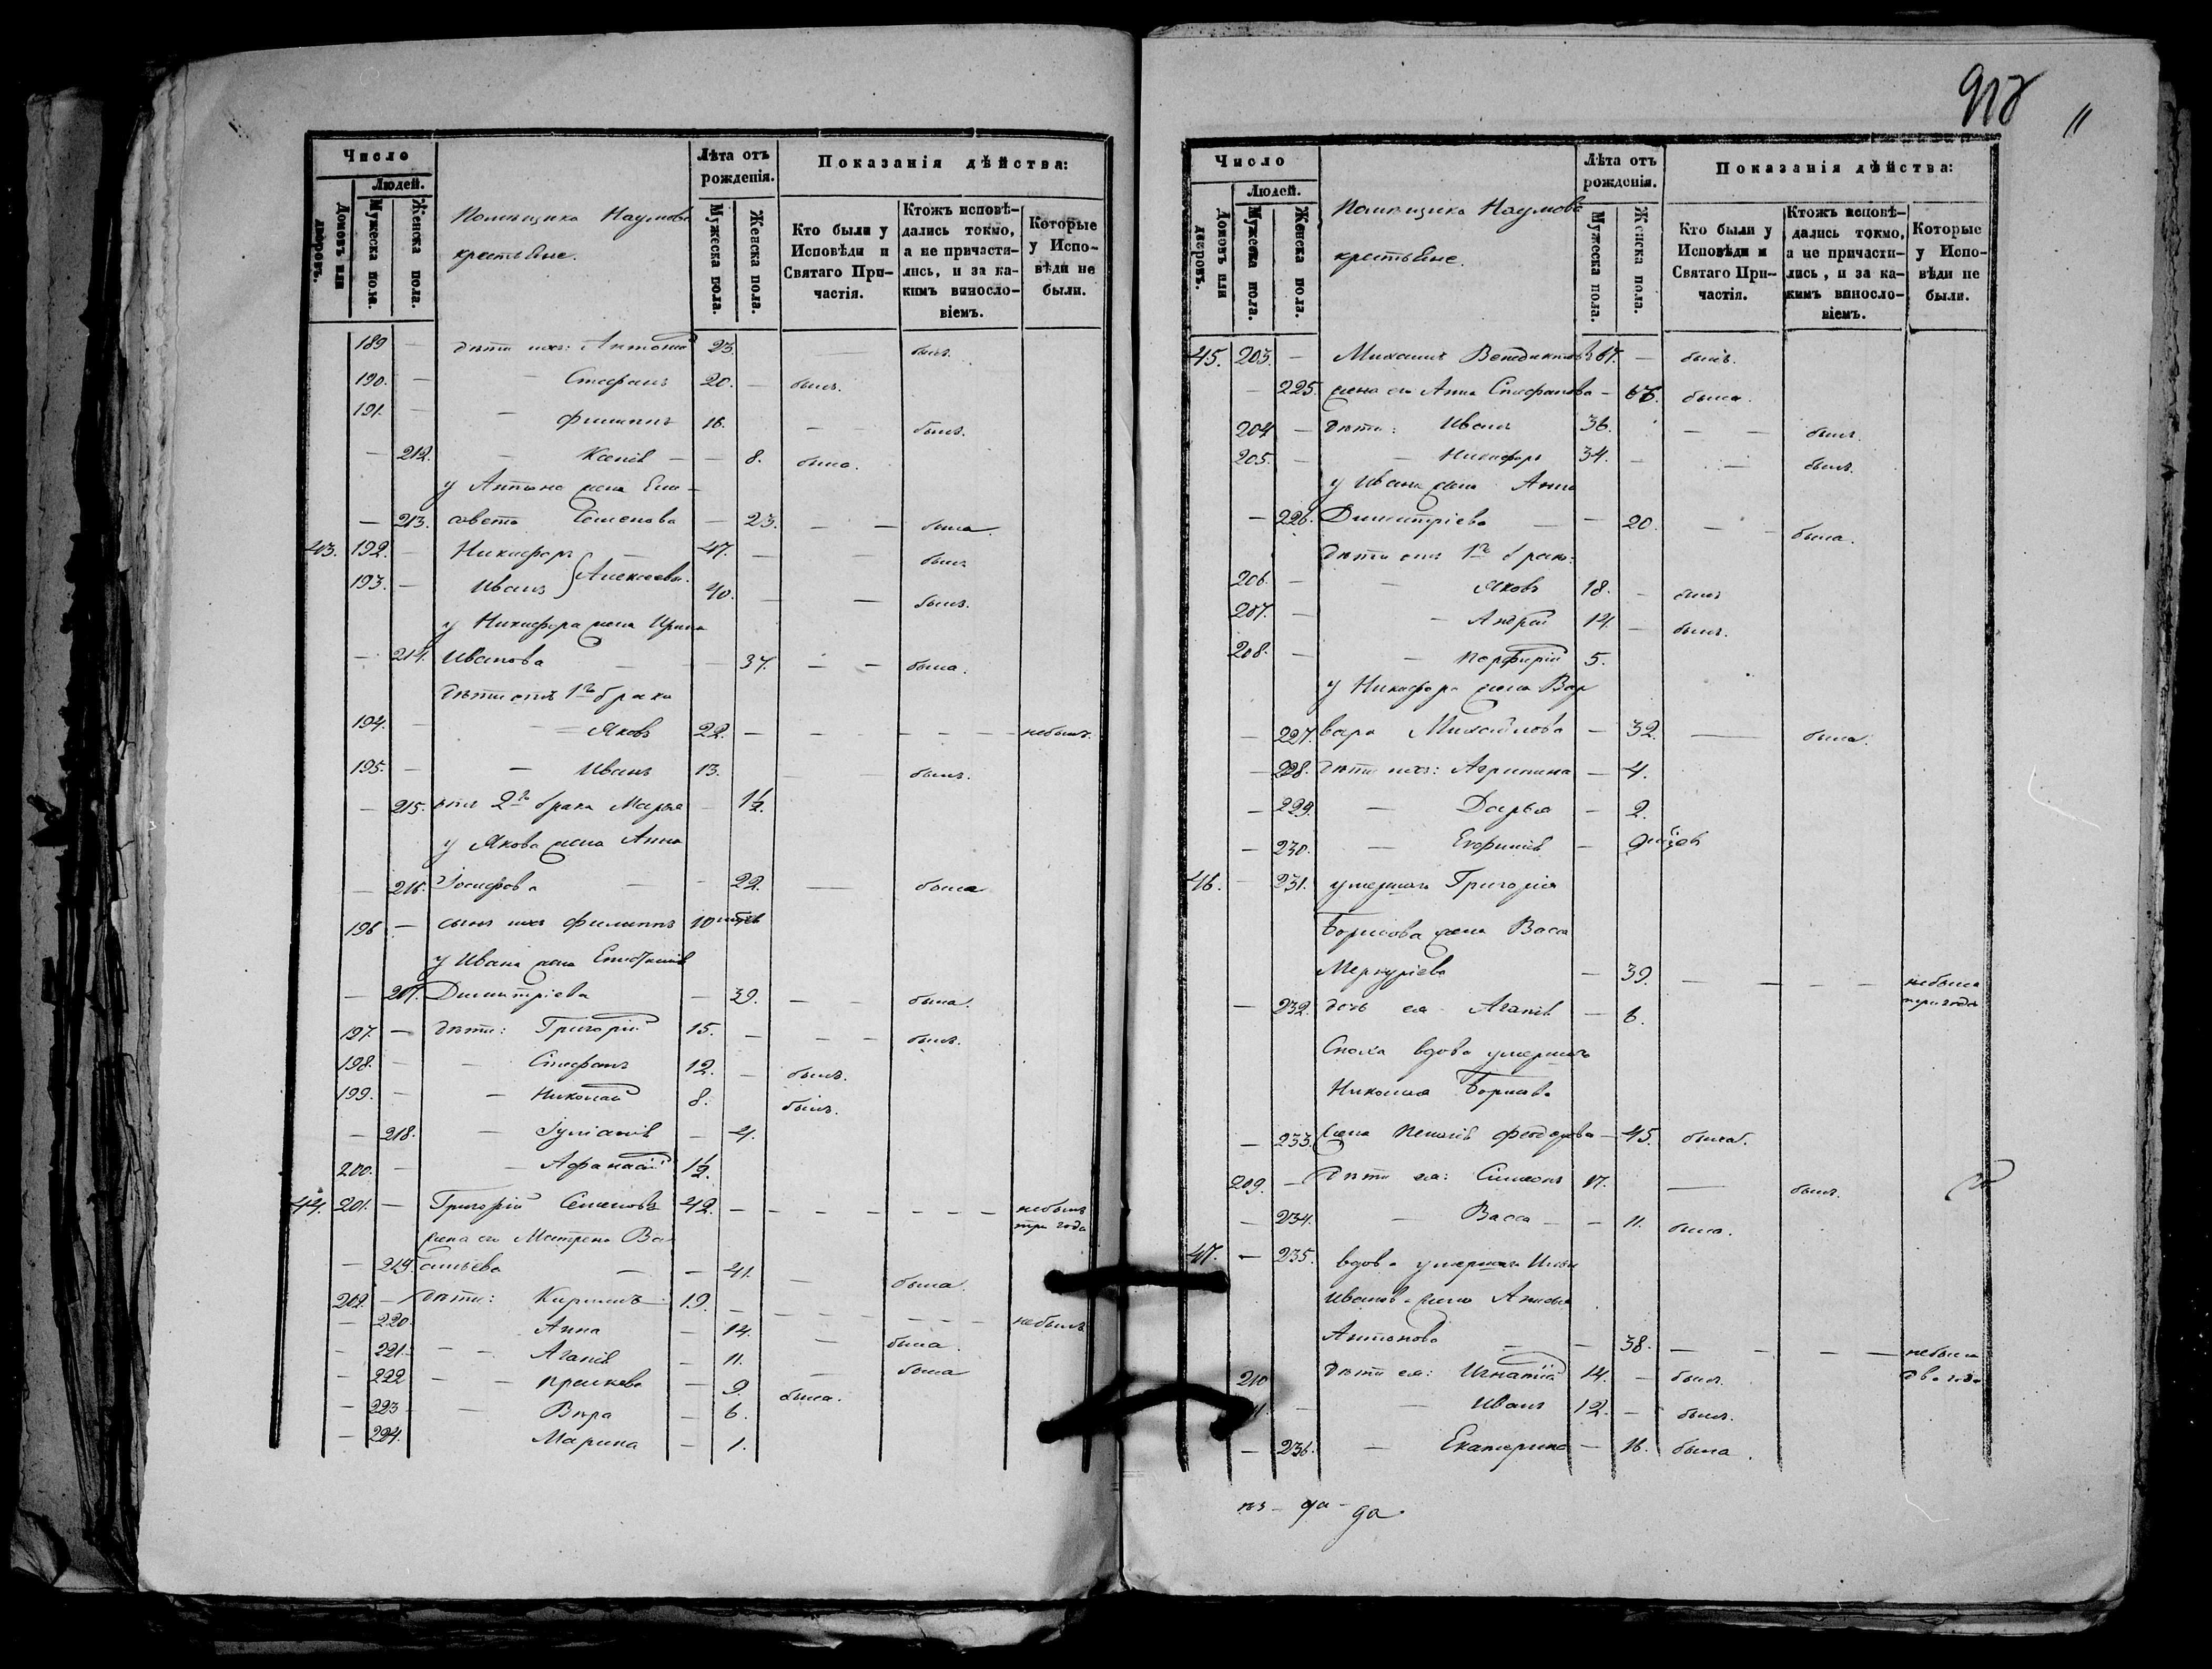 Число
Людей.
Домовъ или дворовъ.
Мужеска пола.
Женска пола.
Помѣщика Наумова
крестьяне.
Лѣта отъ рожденія.
Мужеска пола.
Женска пола.
Показанія дѣйства:
Кто были у Исповѣди и Святаго Причастія.
Ктожъ исповѣдались токмо, а не причастились, и за какимъ винословіемъ.
Которые у Исповѣди не были.
189 — дѣти ихъ: Антоній 23. — былъ.
190. — — Стефанъ 20. — былъ.
191. — — Филиппъ 16. — — былъ.
— 212. — Ксенія — — 8. была.
у Антона жена Ели-
— 213. савета Семенова — 23. — — была.
43. 192. — Никифоръ — 47. — — былъ
193. — Иванъ } Алексѣевы. 40. — — былъ.
у Никифора жена Ирина
— 214. Иванова — — 37. — — была.
дѣти отъ 1го брака
194. — — Яковъ 22. — — — — — небылъ.
195. — — Иванъ 13. — былъ.
— 215. отъ 2го брака Марья — 1½.
у Якова жена Анна
— 216. Іосифова — — 22. — была
196 — сынъ ихъ Филиппъ 10 мѣсяц.
у Ивана жена
— 217. Димитріева — 39. — — была.
197. — дѣти: Григорій 15. — — — былъ.
198. — — Стефанъ 12. — былъ.
199. — — Николай 8. былъ.
— 218. — Іуліанія — 4.
200. — — Афанасій 1½.
44. 201. — Григорій Семеновъ 42. — — — — — — — небылъ
три года
жена его Матрена Ва-
— 219. сильева — — 41. — была.
202. — дѣти: Кириллъ 19. — — — — — — небылъ
— 220. Анна — 14. — была.
— 221. — — Агапія — 11. — была
— 222 — — Прасковья — 9. была.
— 223 — — Вѣра — 6.
— 224. Марина — 1.
11
Число
Людей.
Домовъ или дворовъ.
Мужеска пола.
Женска пола.
Помѣщика Наумова
крестьяне.
Лѣта отъ рожденія.
Мужеска пола.
Женска пола.
Показанія дѣйства:
Кто были у Исповѣди и Святаго Причастія.
Ктожъ исповѣдались токмо, а не причастились, и за какимъ винословіемъ.
Которые у Исповѣди не были.
45. 203. — Михаилъ Венедиктовъ 67. — былъ.
— 225. жена его Анна Стефанова — была.
204 — дѣти: Иванъ 36. — — былъ.
205. — — Никифоръ 34. — — былъ.
у Ивана жена Анна
— 226. Димитріева — — 20. — — была.
дѣти отъ 1го брака:
206. — — Яковъ 18. — былъ
207. — — Андрей 14. — былъ.
208. — — Порфирій 5.
у Никифора жена Вар
— 227. вара Михайлова — 32. — была.
— 228. дѣти ихъ: Агрипина — 4.
— 229. — Дарья — 2.
— 230. — — 9 мѣсяц.
46. — 231. умершаго Григорія
Борисова жена Васса
Меркуріева — 39. — — — — небыла
три года
— 232. дочь ея Агапія — 6.
Сноха вдова умершаго
Николая Борисова
— 233. жена Пелагія Феодорова — 45. была.
209. — дѣти ея: Симеонъ 17. — былъ.
— 234. — Васса — — 11. была.
47. — 235. вдова умершаго Ильи
Иванова жена
Антонова — — 38. — — — — небыла
два года
210 дѣти ея: Игнатій 14. — былъ.
— — Иванъ 12. — былъ.
— 236. — Екатерина — 16. была.